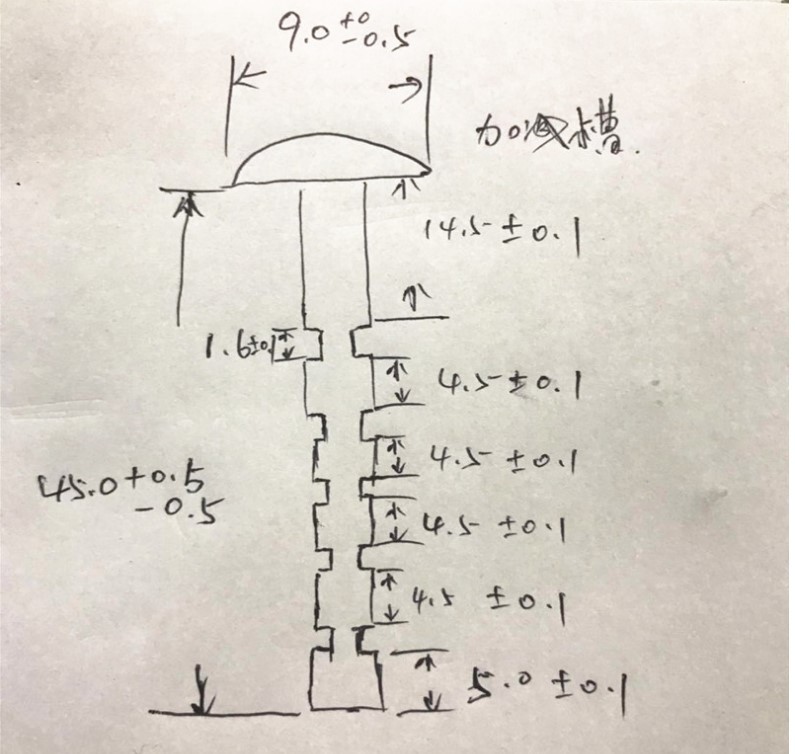 9.0 +0
-0.5
加减槽
14.5 ± 0.1
1.6±0.1
4.5 ± 0.1
4.5 ± 0.1
45.0 +0.5
-0.5
4.5 ±0.1
4.5 ±0.1
5.0 ±0.1